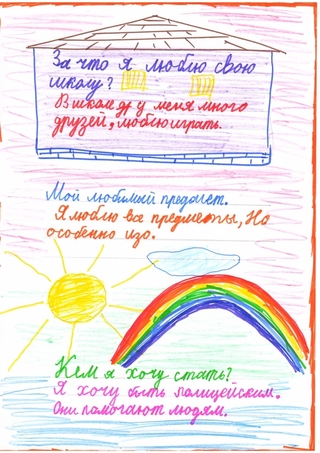 За что я люблю свою
школу?
В школе у меня много
друзей, люблю играть.
Мой любимый предмет.
Я люблю все предметы, Но
особенно изо.
Кем я хочу стать?
Я хочу быть полицейским.
Они помогают людям.